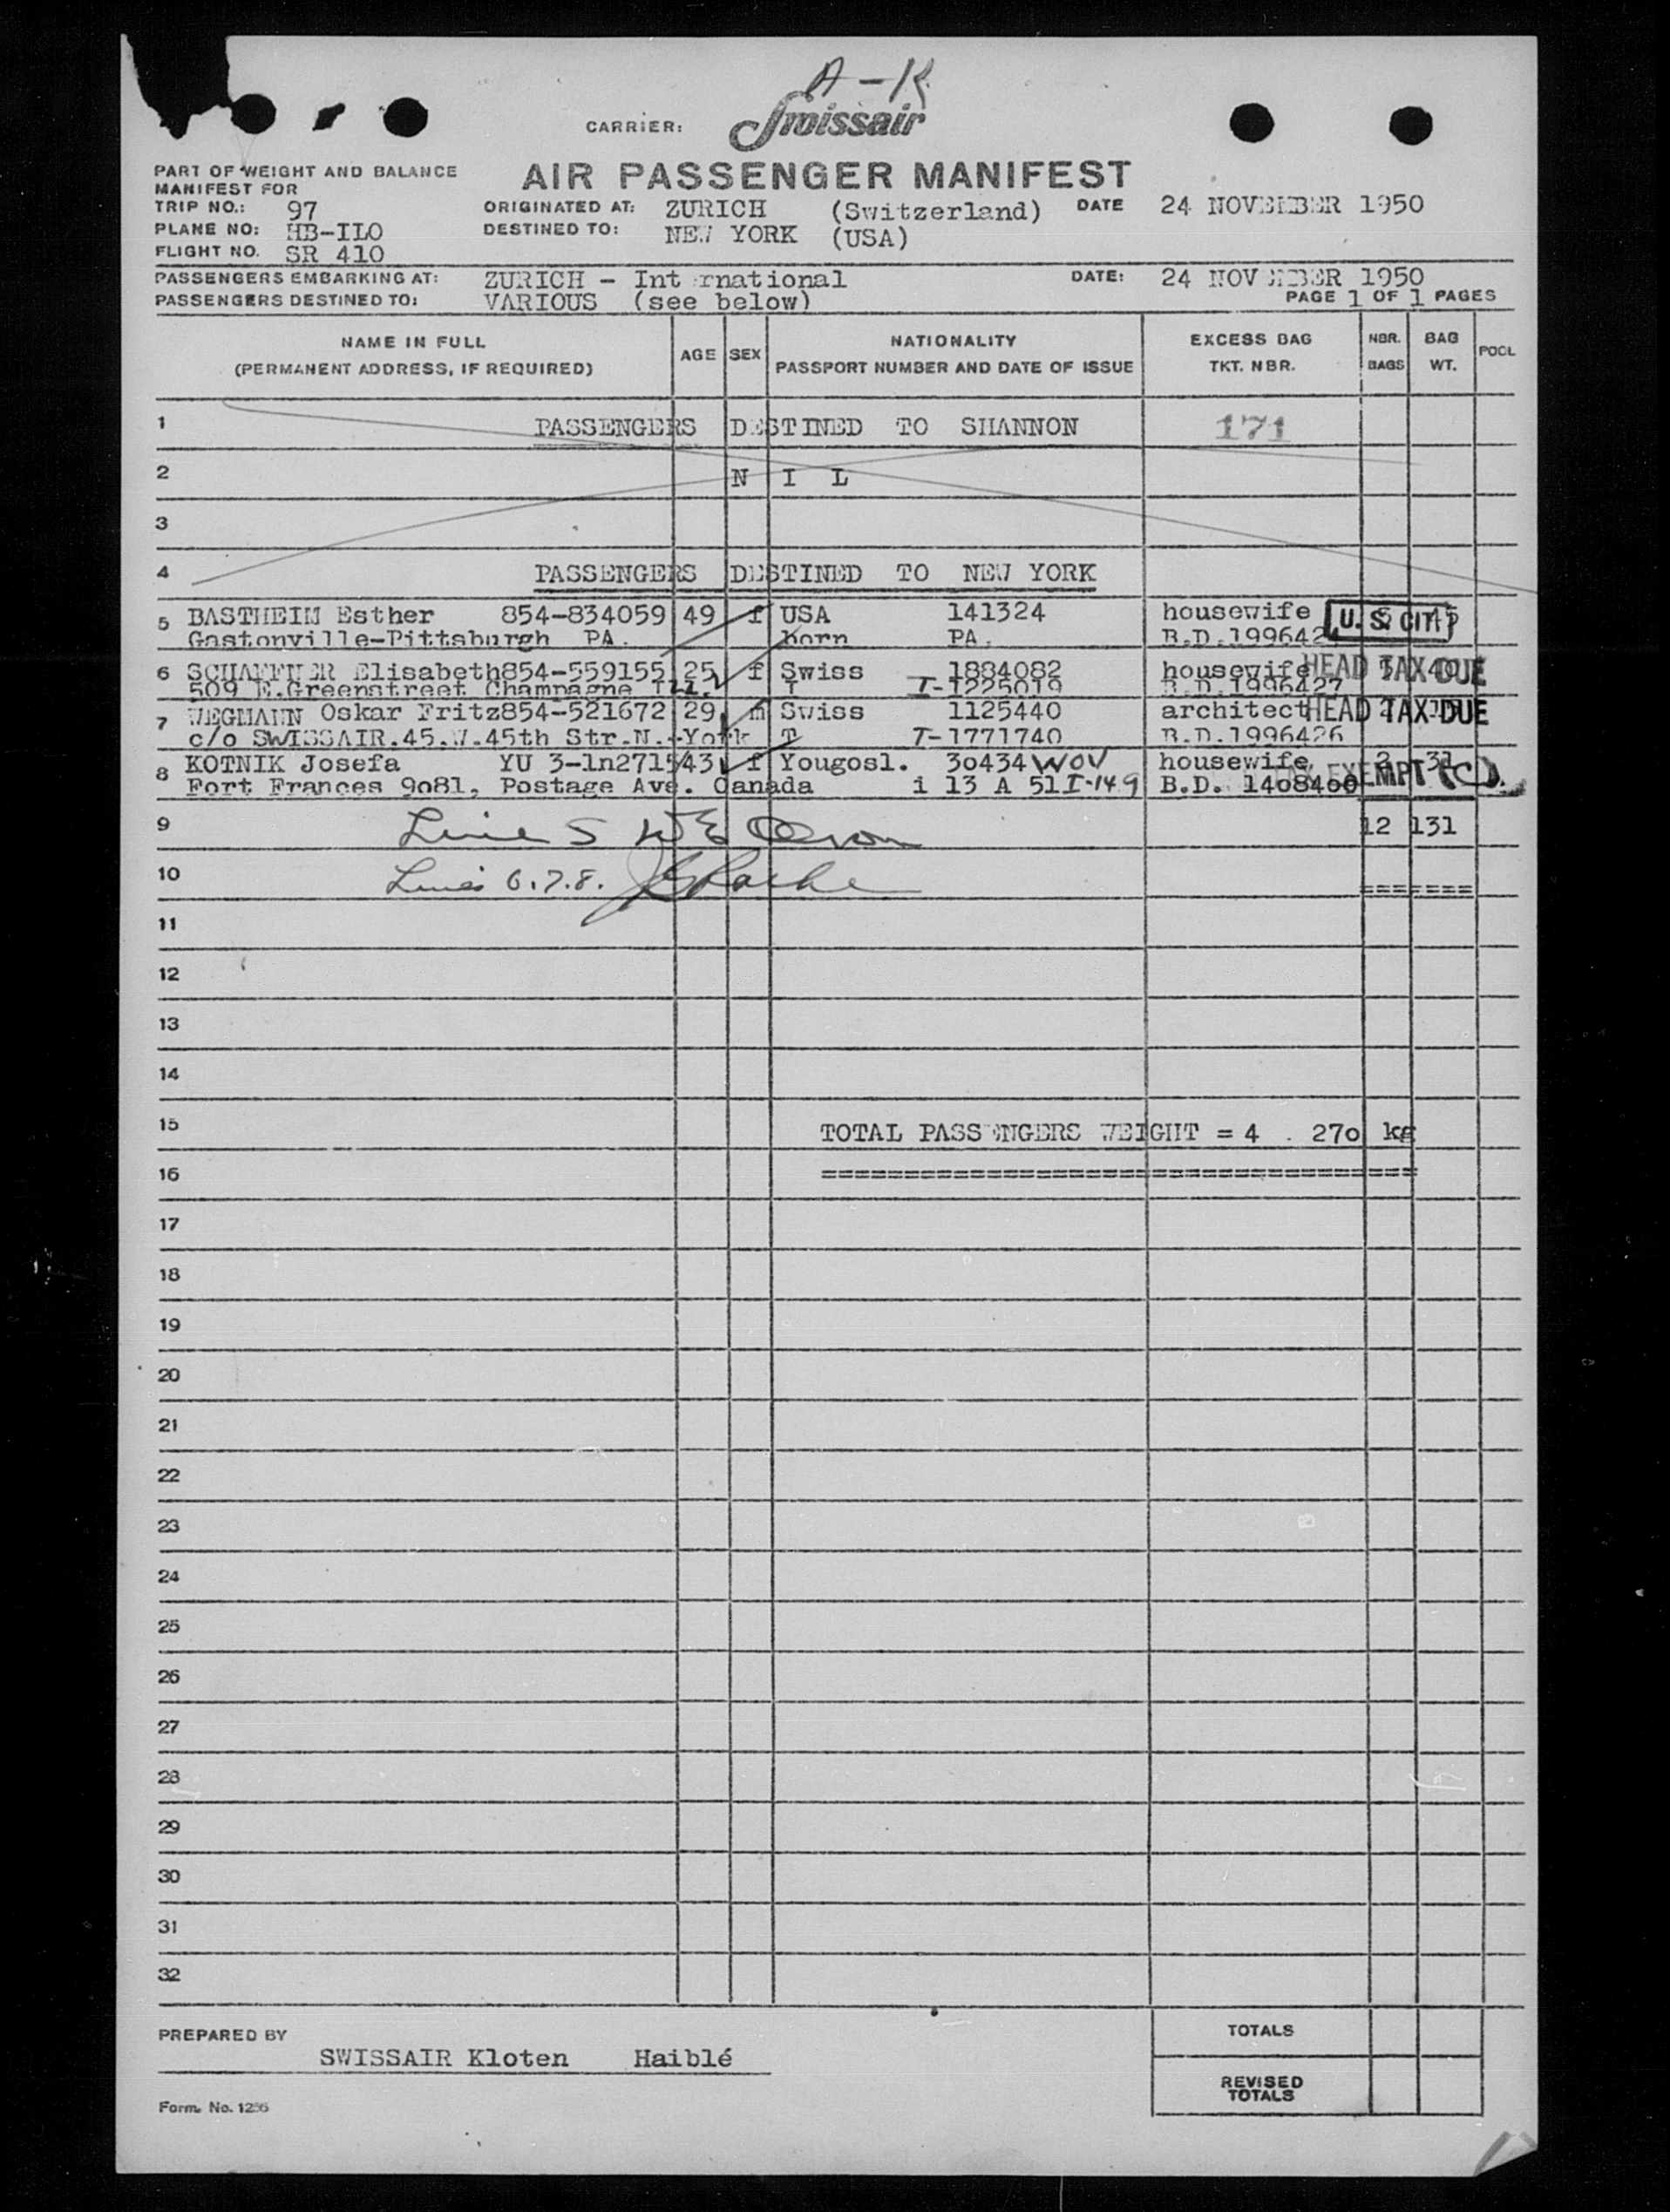 A-K
CARRIER: Swissair
AIR PASSENGER MANIFEST
PART OF WEIGHT AND BALANCE
MANIFEST FOR
TRIP NO.: 97 ORIGINATED AT: ZURICH (Switzerland) DATE 24 NOVEMBER 1950
PLANE NO: HB-ILO DESTINED TO: NEW YORK (USA)
FLIGHT NO. SR 410
PASSENGERS EMBARKING AT: ZURICH - International DATE: 24 NOVEMBER 1950
PASSENGERS DESTINED TO: VARIOUS (see below) PAGE 1 OF 1 PAGES
NAME IN FULL AGE SEX NATIONALITY EXCESS BAG NBR. BAG POOL
(PERMANENT ADDRESS, IF REQUIRED) PASSPORT NUMBER AND DATE OF ISSUE TKT. NBR. BAGS WT.
1 PASSENGERS DESTINED TO SHANNON 171
2 N I L
3
4 PASSENGERS DESTINED TO NEW YORK
5 BASTHEIM Esther 854-834059 49 f USA 141324 housewife U.S. CIT.
Gastonville-Pittsburgh PA. born PA. B.D.
6 SCHAFFNER Elisabeth 854-559155 25 f Swiss 1884082 housewife HEAD TAX DUE
509 E.Greenstreet Champagne Ill. T T-1225019 B.D.1996427
7 WEGMANN Oskar Fritz 854-521672 29 m Swiss 1125440 architect HEAD TAX DUE
c/o SWISSAIR.45.W.45th Str.N.-York T T-1771740 B.D.1996426
8 KOTNIK Josefa YU 3-ln2715 43 f Yougosl. 30434 WOV housewife 2 31
Fort Frances 9o81, Postage Ave. Canada i 13 A 51 I-149 B.D. 1408400 EXEMPT (C)
9 Line 5 12 131
10 Lines 6.7.8. =======
11
12
13
14
15 TOTAL PASSENGERS WEIGHT = 4 . 27o kg
16 ===================================
17
18
19
20
21
22
23
24
25
26
27
28
29
30
31
32
PREPARED BY TOTALS
SWISSAIR Kloten Haiblé
REVISED
TOTALS
Form. No. 1256